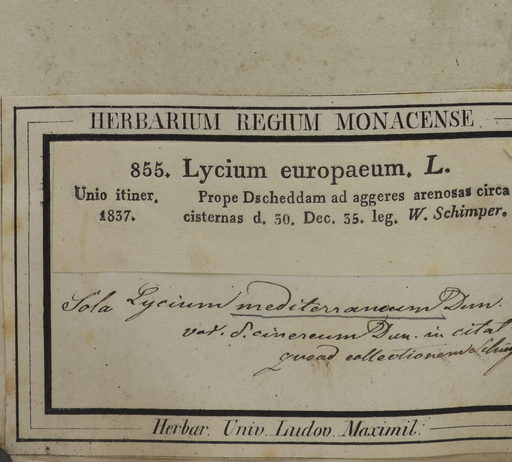 HERBARIUM REGIUM MONACENSE
855. Lycium europaeum. L.
Unio itiner. 1837.
Prope Dscheddam ad aggeres arenosas circa
cisternas d. 30. Dec. 35. leg. W. Schimper.
Lycium mediterraneum Dun.
var. δ. cinereum Dun. in citat
quoad collectionem Schimp
Herbar. Univ. Ludov. Maximil.